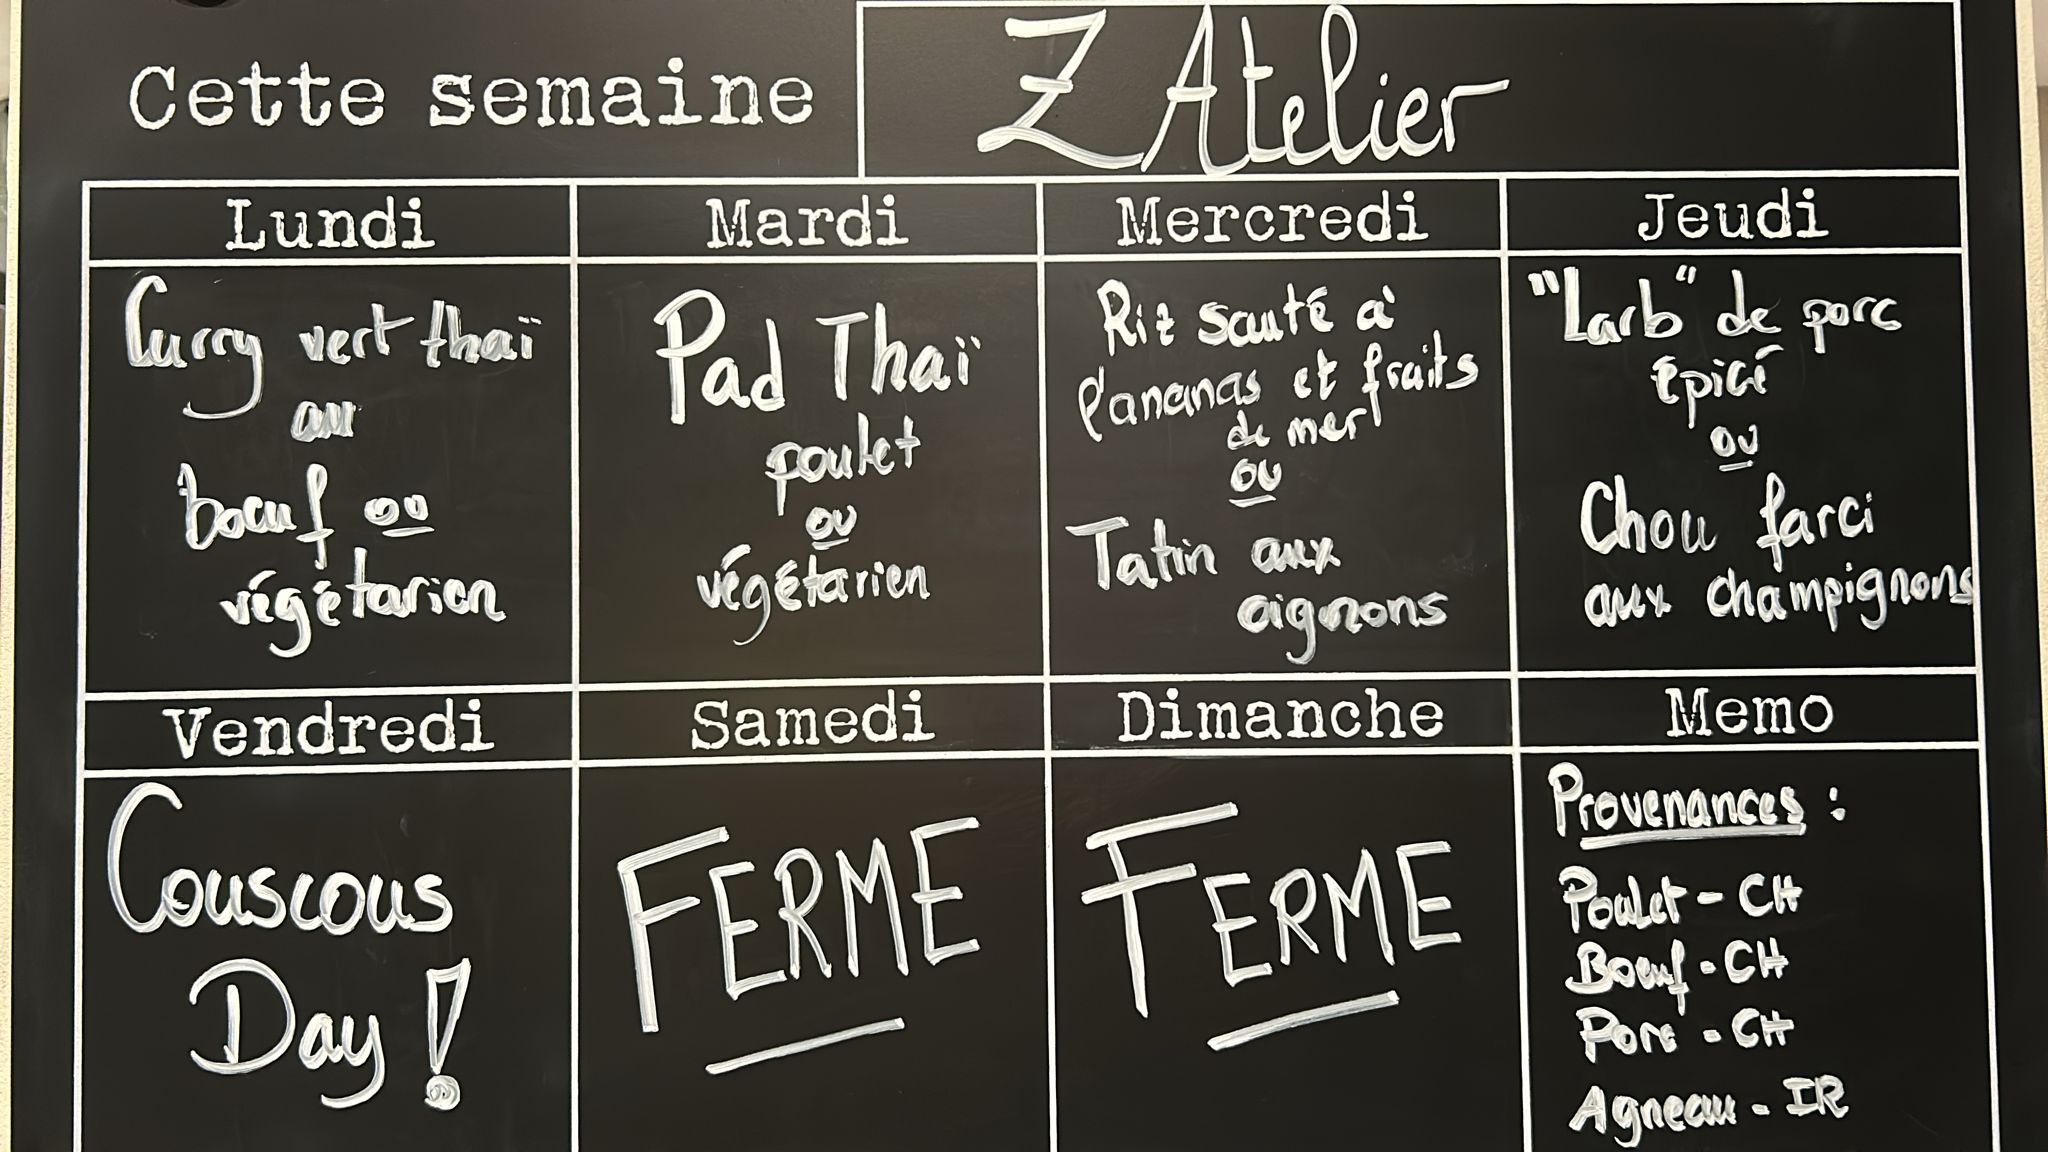 Cette semaine
Z Atelier
Lundi
Curry vert thaï
au
boeuf ou
végétarien
Mardi
Pad Thaï
poulet
ou
végétarien
Mercredi
Riz sauté à
l'ananas et fruits
de mer
ou
Tatin aux
oignons
Jeudi
"Larb" de porc
épicé
ou
Chou farci
aux champignons
Vendredi
Couscous
Day !
Samedi
FERME
Dimanche
FERME
Memo
Provenances :
Poulet - CH
Boeuf - CH
Porc - CH
Agneau - IR